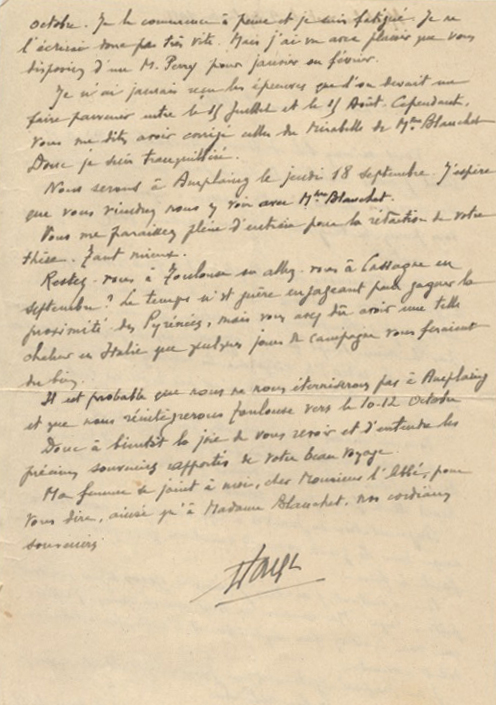 octobre. Je le commence à peine et je suis fatigué. Je ne
l'écrirai donc pas très vite. Mais j'ai vu avec plaisir que vous
disposiez d'un M. Perry pour janvier ou février.
Je n'ai jamais reçu les épreuves que l'on devait me
faire parvenir entre le 15 Juillet et le 15 Août. Cependant,
vous me dites avoir corrigé celles de Mirabelle de Mme Blanchet
Donc je suis tranquillisé.
Nous serons à Amplaing le jeudi 18 septembre. J'espère
que vous viendrez nous y voir avec Mme Blanchet.
Vous me paraissez pleine d'entrain pour la rédaction de votre
thèse. Tant mieux.
Restez-vous à Toulouse ou allez-vous à Cassagne en
septembre? Le temps n'est guère engageant pour gagner la
proximité des Pyrénées, mais vous avez dû avoir une telle
chaleur en Italie que quelques jours de campagne vous feraient
du bien.
Il est probable que nous ne nous éterniserons pas à Amplaing
et que nous réintégrerons Toulouse vers le 10-12 Octobre
Donc à bientôt la joie de vous revoir et d'entendre les
précieux souvenirs rapportés de votre beau voyage.
Ma femme se joint à moi, cher Monsieur l'Abbé, pour
vous dire, ainsi qu'à Madame Blanchet, nos cordiaux
souvenirs